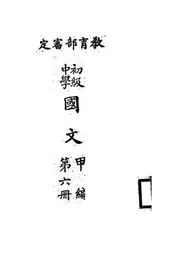 教育部審定
初級
中學
國文
甲編
第六冊